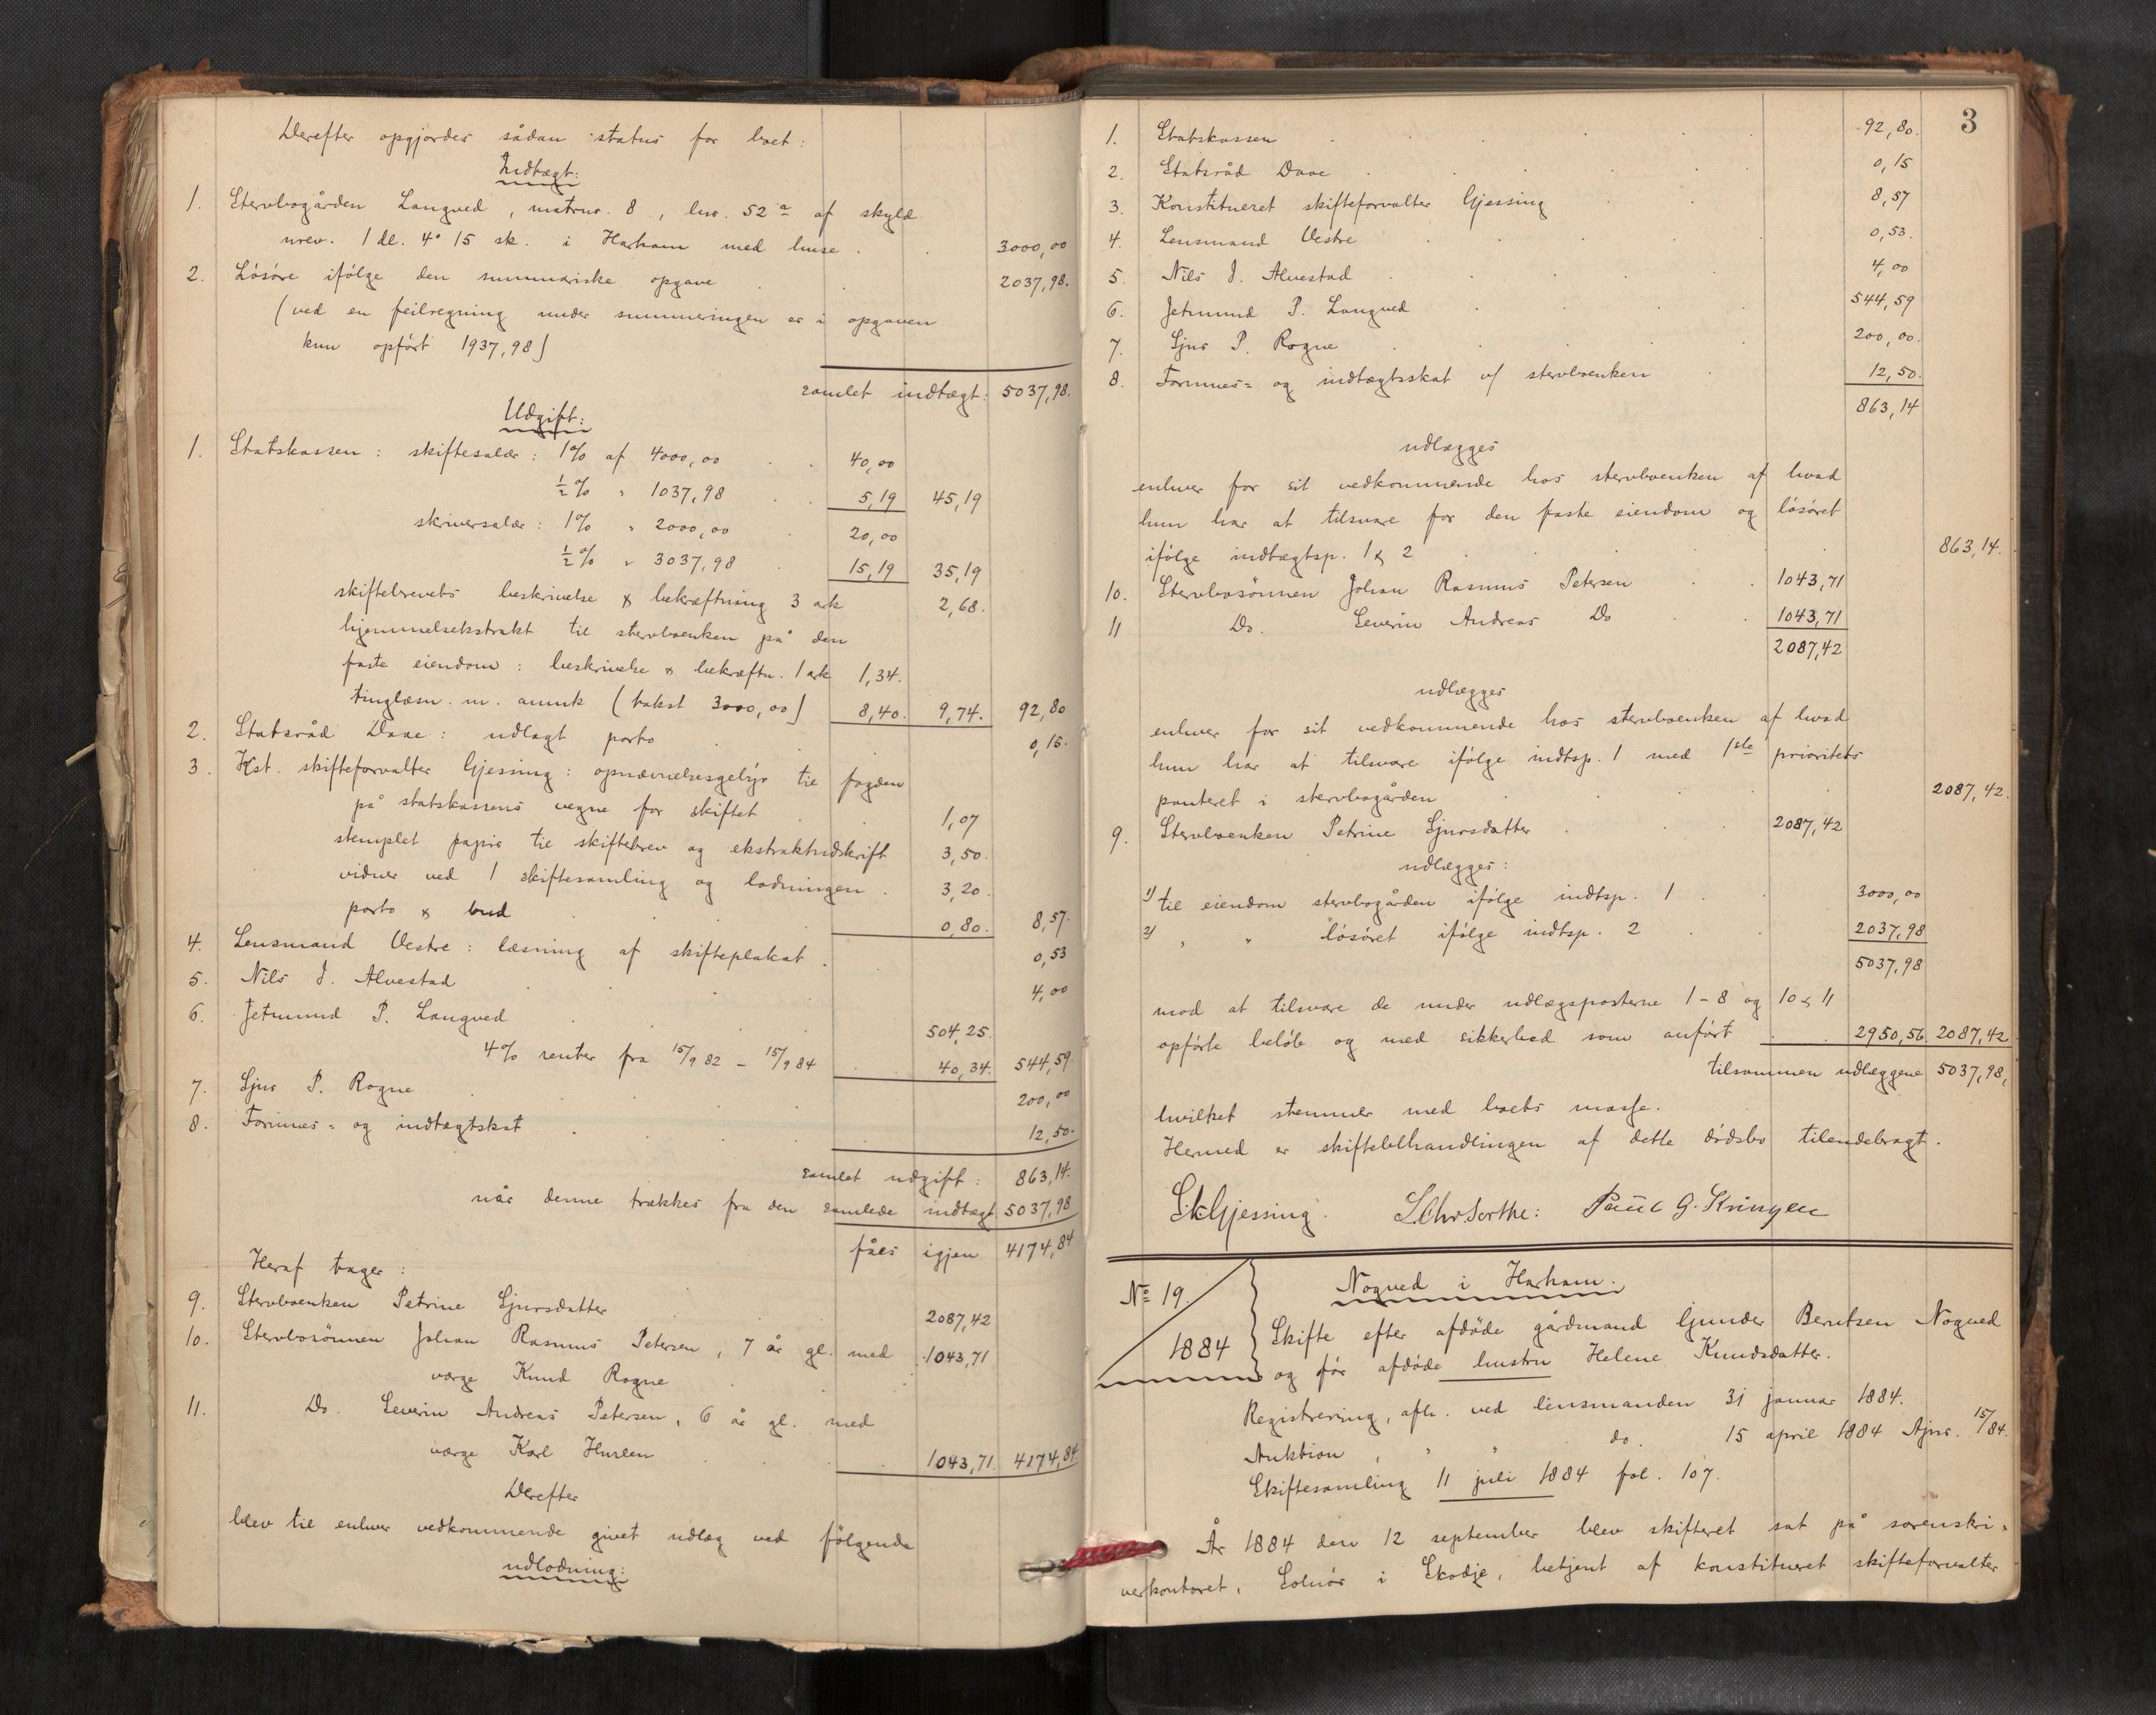 Derefter opgjordes sådan status for boet:
Indtægt:
1. Stervbogården Langved, matrnr. 8, lnr. 52 a af skyld
urev. 1 dl. 4° 15 sk. i Harham med huse . 3000,00
2. Lösöre ifölge den summariske opgave . . 2037,98.
(ved en feilregning under summeringen er i opgaven
kun opfört 1937,98)
samlet indtægt: 5037,98.
Udgift:
1. Statskassen: skiftesalær: 1% af 4000,00 . . 40,00
½% " 1037,98 . . 5,19 45,19
skriversalær: 1% " 2000,00 . 20,00
½% " 3037,98 . 15,19 35,19
skiftebrevets beskrivelse & bekræftning 3 ark 2,68.
hjemmelsekstrakt til stervboenken på den
faste eiendom: beskrivelse & bekræftn. 1 ark 1,34.
tinglæsn. m. anmk (takst 3000,00) 8,40. 9,74. 92,80
2. Statsråd Daae: udlagt porto . . 0,15.
3. Kst. skifteforvalter Gjessing: opnævnelsesgebyr til fogden
på statskassens vegne for skiftet . . 1,07
stemplet papir til skiftebrev og ekstraktudskrift 3,50.
vidner ved 1 skiftesamling og lodningen . 3,20.
porto & bud . . 0,80. 8,57.
4. Lensmand Vestre: læsning af skifteplakat . 0,53
5. Nils J. Alvestad . . 4,00
6. Jetmund P. Langved . . 504,25.
4% renter fra 15/9 82 – 15/9 84 . 40,34. 544,59.
7. Sjur P. Rogne . . 200,00
8. Formues= og indtægtskat . . 12,50.
samlet udgift: 863,14.
når denne trækkes fra den samlede indtægt 5037,98
fåes igjen 4174,84
Heraf tager:
9. Stervboenken Petrine Sjursdatter . 2087,42
10. Stervbosönnen Johan Rasmus Petersen, 7 år gl. med 1043,71
værge Knud Rogne . .
11. Do. Severin Andreas Petersen, 6 år gl. med
værge Karl Hurlen . . 1043,71. 4174,84.
Derefter
blev til enhver vedkommende givet udlæg ved fölgende
udlodning:
3
1. Statskassen . . 92,80.
2. Statsråd Daae . . 0,15
3. Konstitueret skifteforvalter Gjessing . . 8,57
4. Lensmand Vestre . . 0,53.
5. Nils J. Alvestad . . 4,00
6. Jetmund P. Langved . . 544,59
7. Sjur P. Rogne . . 200,00.
8. Formues= og indtægtsskat v/ stervboenken . 12,50.
863,14
udlægges
enhver for sit vedkommende hos stervboenken af hvad
hun har at tilsvare for den faste eiendom og lösöret
ifölge indtægtsp. 1 & 2 . . 863,14.
10. Stervbosönnen Johan Rasmus Petersen . . 1043,71
11 Do. Severin Andreas Do . . 1043,71
2087,42
udlægges
enhver for sit vedkommende hos stervboenken af hvad
hun har at tilsvare ifölge indtsp. 1 med 1ste prioritets
panteret i stervbogården . . 2087,42.
9. Stervboenken Petrine Sjursdatter . . 2087,42
udlægges:
1) til eiendom stervbogården ifölge indtsp. 1 . . 3000,00
2) " " lösöret ifölge indtsp. 2 . . 2037,98
5037,98
mod at tilsvare de under udlægsposterne 1 – 8 og 10 & 11
opförte belöb og med sikkerhed som anfört . . 2950,56 2087,42
tilsammen udlæggene 5037,98,
hvilket stemmer med boets masse.
Hermed er skiftebehandlingen af dette dödsbo tilendebragt.
Gjessing. Paul G. Kringen
No 19. Nogved i Harham.
1884 Skifte efter afdöde gårdmand Gunder Berntsen Nogved
og för afdöde hustru Helene Knudsdatter.
Registrering, afh. ved lensmanden 31 januar 1884.
Auktion, " " do. 15 april 1884 Ajnr. 15/84.
Skiftesamling 11 juli 1884 fol. 107.
År 1884 den 12 september blev skifteret sat på sorenskri=
verkontoret, Solnör i Skodje, betjent af konstitueret skifteforvalter